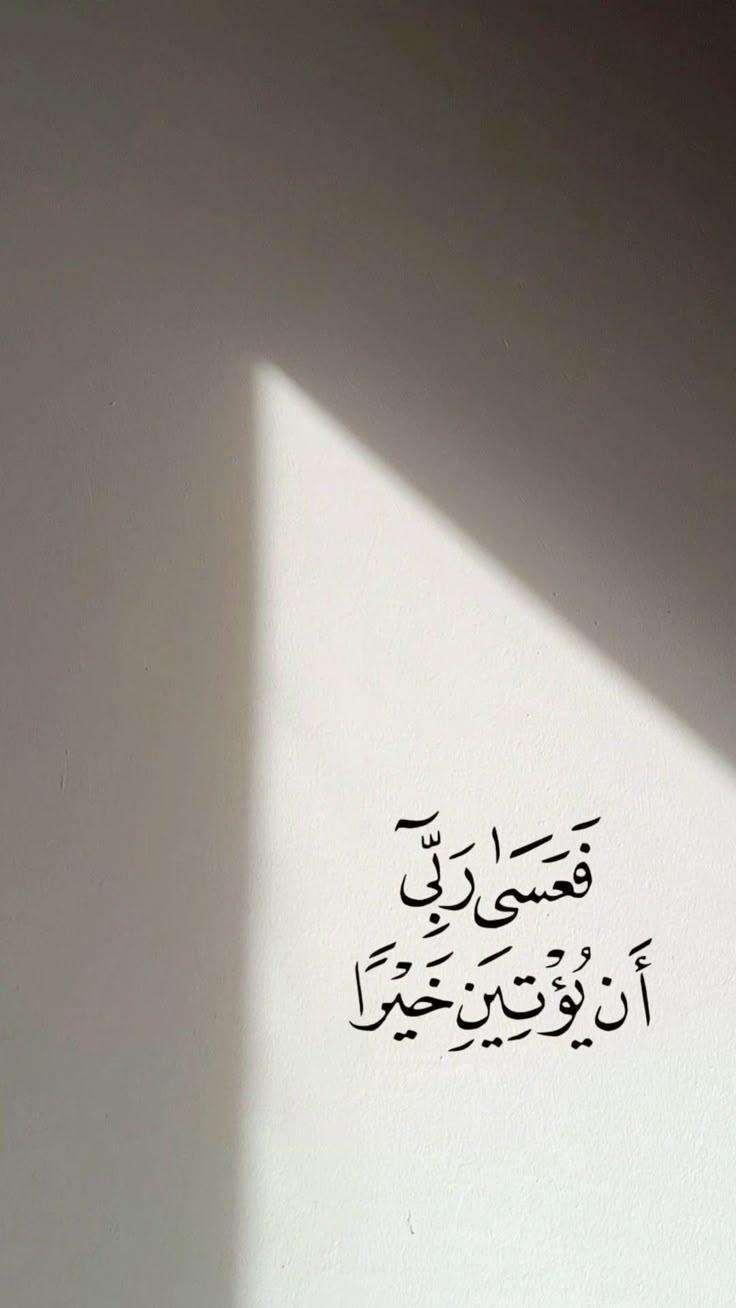 فَعَسَىٰ رَبِّىٓ
أَن يُؤْتِيَنِ خَيْرًا